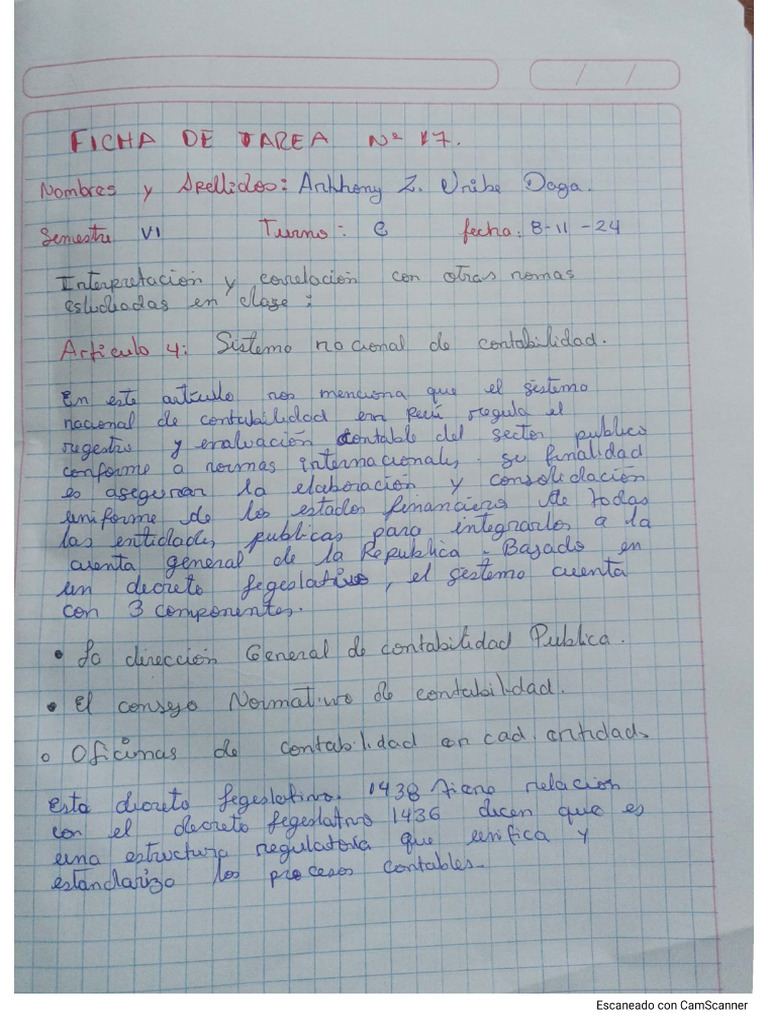 FICHA DE TAREA Nº 17.
Nombres y Apellidos: Anhhony Z. Uribe Daga.
Semestre VI Turno: C fecha: 8-11-24
Interpretación y correlación con otras nomas
estudiadas en clase:
Articulo 4: Sistema nacional de contabilidad.
En este artículo nos menciona que el sistema
nacional de contabilidad en Perú regula el
regestro y evaluación contable del sector publico
conforme a normas internacionales, su finalidad
es asegurar la elaboración y consolidación
uniforme de los estados financiero de todas
las entidades publicas para integrarlos a la
cuenta general de la Republica. Basado en
un decreto fegeslativo, el sestemo cuenta
con 3 componentes.
• La dirección General de contabilidad Publica.
• El consejo Normativo de contabilidad.
o Oficinas de contabilidad en cad. entidad.
Esta dicreto fegeslativo. 1438 tiene relacion
con el decreto fegeslativo 1436 dicen que es
una estructura regulatoria que unifica y
estandariza los procesos contables.
Escaneado con CamScanner